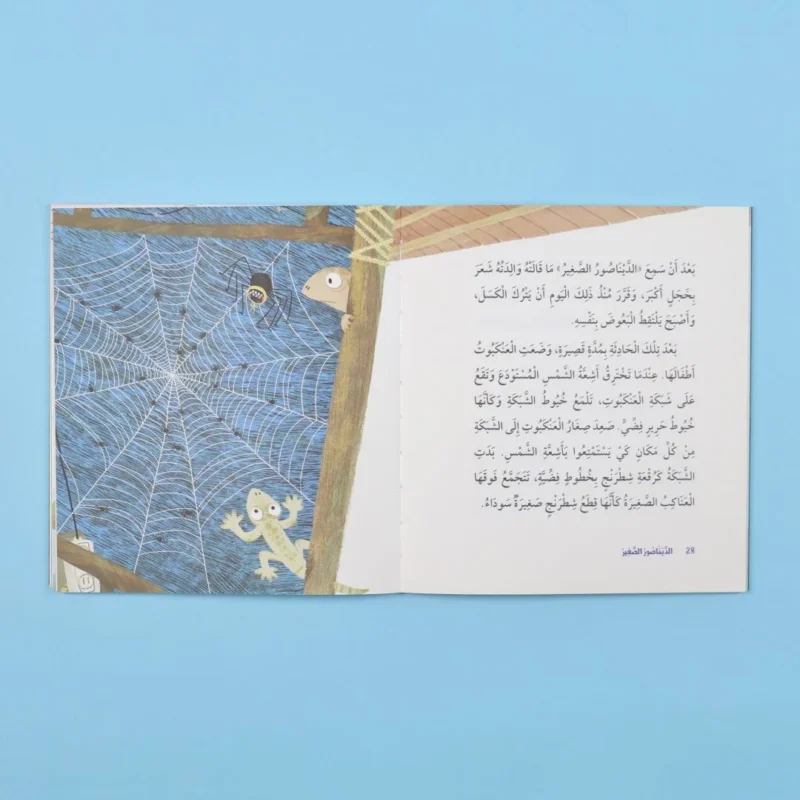 بَعْدَ أَنْ سَمِعَ «الدَّيْنَاصُورُ الصَّغِيرُ» مَا قَالَتْهُ وَالِدَتُهُ شَعَرَ
بِخَجَلٍ أَكْبَرَ، وَقَرَّرَ مُنْذُ ذَلِكَ الْيَومِ أَنْ يَتْرُكَ الْكَسَلَ،
وَأَصْبَحَ يَلْتَقِطُ الْبَعُوضَ بِنَفْسِهِ.
بَعْدَ تِلْكَ الْحَادِثَةِ بِمُدَّةٍ قَصِيرَةٍ، وَضَعَتِ الْعَنْكَبُوتُ
أَطْفَالَهَا. عِنْدَمَا تَخْتَرِقُ أَشِعَّةُ الشَّمْسِ الْمُسْتَوْدَعَ وَتَقَعُ
عَلَى شَبَكَةِ الْعَنْكَبُوتِ، تَلْمَعُ خُيُوطُ الشَّبَكَةِ وَكَأَنَّهَا
خُيُوطُ حَرِيرٍ فِضِّيٍّ. صَعِدَ صِغَارُ الْعَنْكَبُوتِ إِلَى الشَّبَكَةِ
مِنْ كُلِّ مَكَانٍ كَيْ يَسْتَمْتِعُوا بِأَشِعَّةِ الشَّمْسِ. بَدَتِ
الشَّبَكَةُ كَرُقْعَةِ شِطْرَنْجٍ بِخُطُوطٍ فِضِّيَّةٍ، تَتَجَمَّعُ فَوقَهَا
الْعَنَاكِبُ الصَّغِيرَةُ كَأَنَّهَا قِطَعُ شِطْرَنْجٍ صَغِيرَةٌ سَودَاءُ.
28 الدَّيْنَاصُورُ الصَّغِيرُ